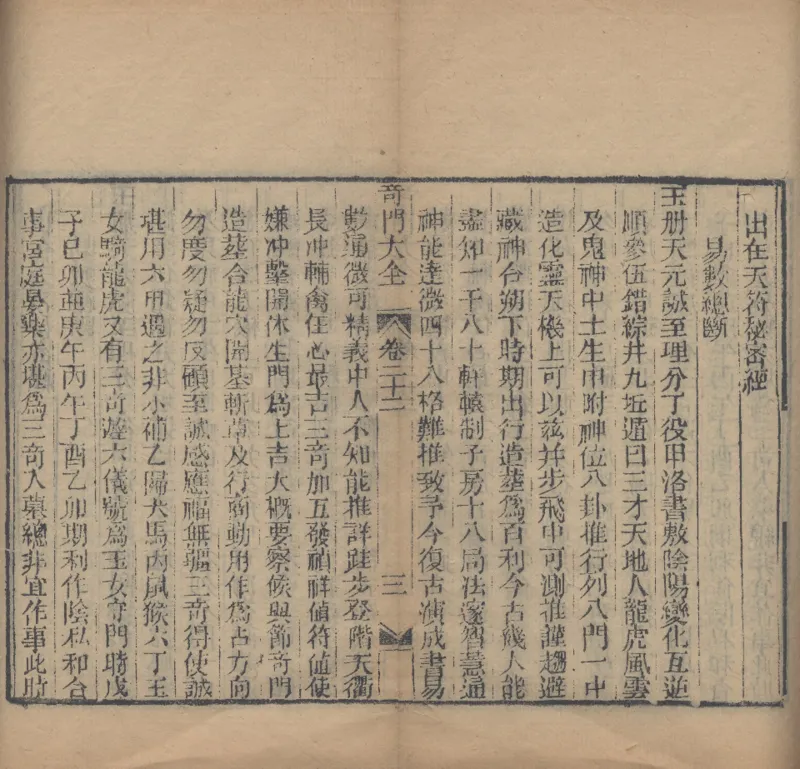 出在天符秘密經
易數總斷
玉册天元誠至理分丁役甲洛書敷陰陽變化互逆
順參伍錯綜井九坵遁曰三才天地人龍虎風雲
及鬼神中土生申附神位八卦推行列八門一中
造化靈天機上可以兹并步飛中可測推謹趨避
藏神台朔下時期出行造塟爲百利今古幾人能
盡知一千八十軒轅制子房十八局法邃智慧通
神能達微四十八格難推致予今復古演成書易
奇門大全 卷二十二 三
數通微可精義中人不知能推詳跬步登階天衢
長冲輔禽任心最吉三奇加五發禎祥値符値使
嫌冲擊開休生門爲上吉大概要察候與節奇門
造塟合龍穴開基斬草及行商動用作爲占方向
勿度勿疑勿反顧至誠感應福無疆三奇得使誠
堪用六甲遇之非小補乙陽犬馬丙鼠猴六丁玉
女騎龍虎又有三奇遊六儀號爲玉女守門時戊
子巳卯並庚午丙午丁酉乙卯期利作陰私和合
事宮庭晏樂亦堪爲三奇入墓總非宜作事此時